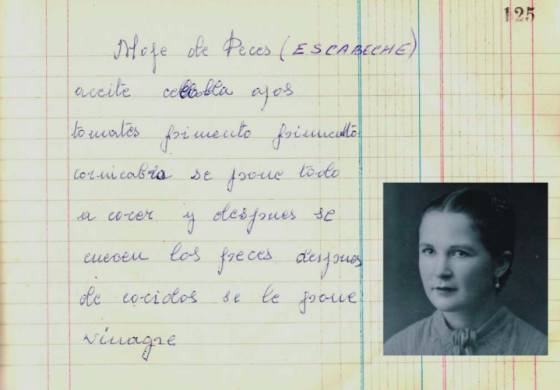 125
Moje de Peces (ESCABECHE)
aceite cebolla ajos
tomates pimento pimiento
cornicabra se pone todo
a cocer y despues se
cuecen los peces despues
de cocidos se le pone
vinagre